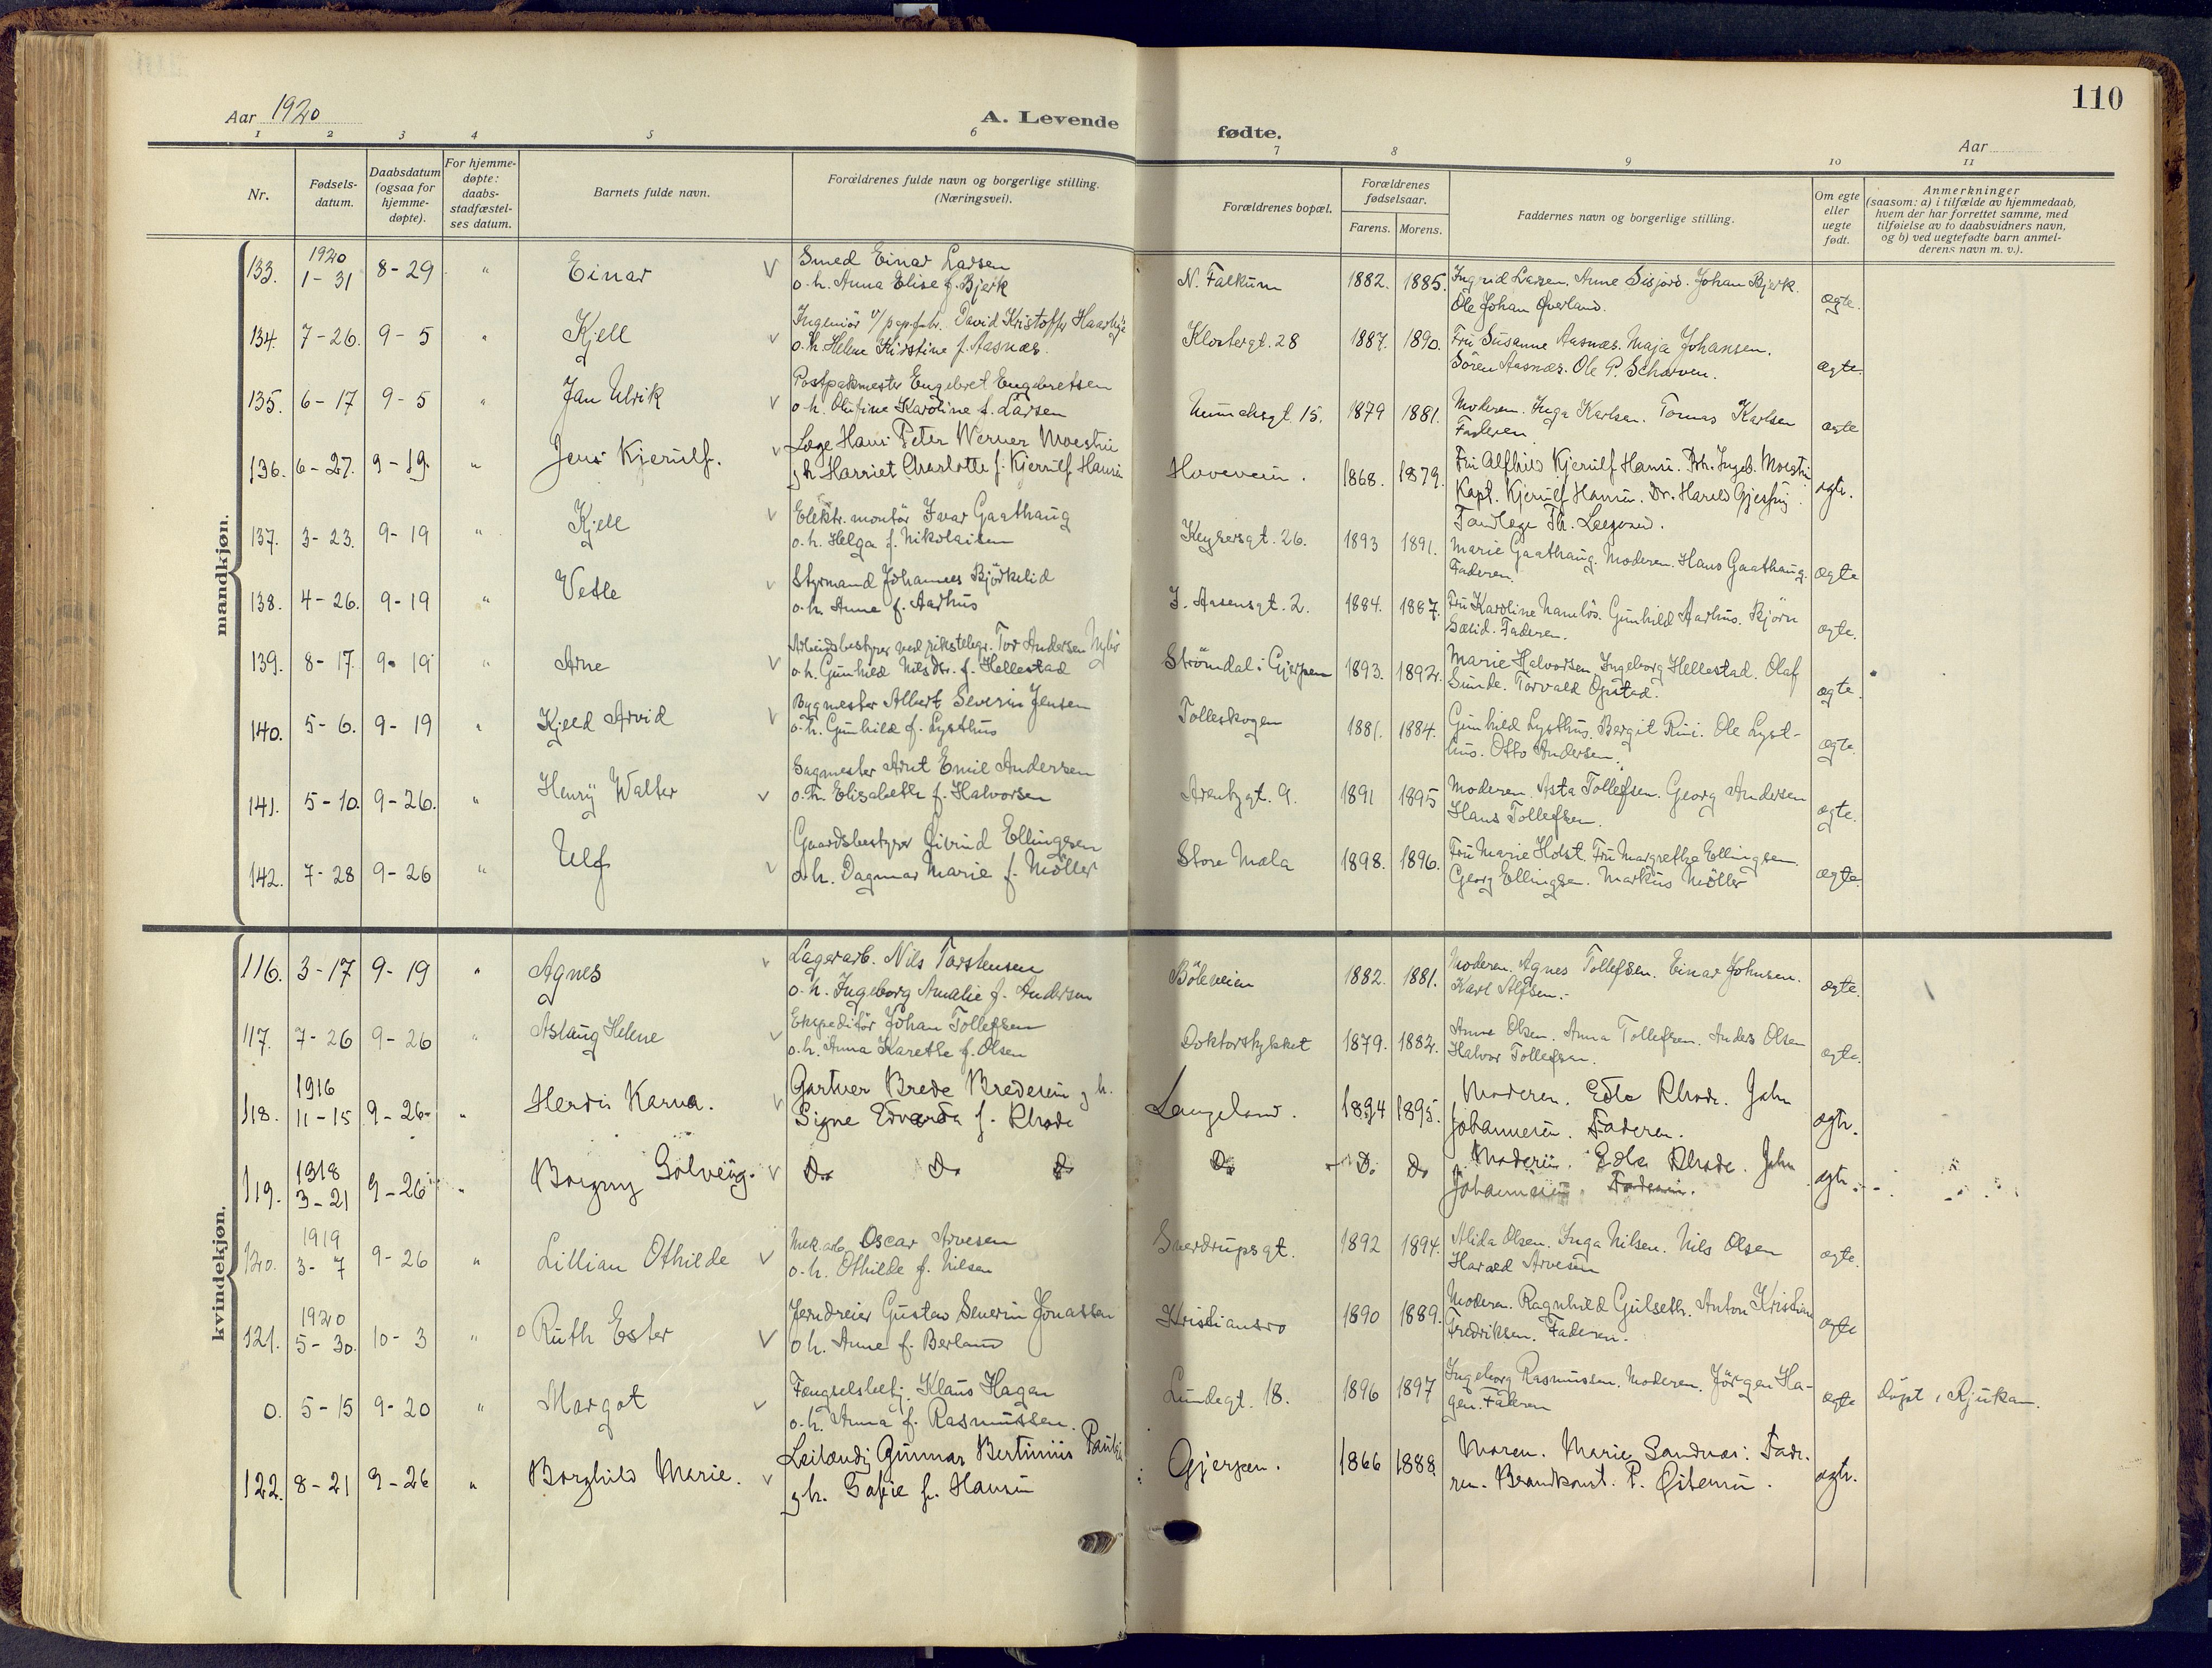 110
Aar 1920
A. Levende fødte.
Aar
1 2 3 4 5 6 7 8 9 10 11
Nr.
Fødsels-
datum.
Daabsdatum
(ogsaa for
hjemme-
døpte).
For hjemme-
døpte:
daabs-
stadfæstel-
ses datum.
Barnets fulde navn.
Forældrenes fulde navn og borgerlige stilling.
(Næringsvei).
Forældrenes bopæl.
Forældrenes
fødselsaar.
Farens. Morens.
Faddernes navn og borgerlige stilling.
Om egte
eller
uegte
født.
Anmerkninger
(saasom: a) i tilfælde av hjemmedaab,
hvem der har forrettet samme, med
tilføielse av to daabsvidners navn,
og b) ved uegtefødte barn anmel-
derens navn m. v.).
mandkjøn.
133. 1920 1-31 8-29 " Einar
Smed Einar Larsen
o.h. Anna Elise f. Bjerk
N. Falkum 1882. 1885.
Ingrid Larsen. Anne Sisjord. Johan Bjerk.
Ole Johan Øverland.
ægte.
134. 7-26. 9-5 " Kjell
Ingeniör v/papfabr. David Kristoffer
o.h. Helene Kirstine f. Aasnæs.
Klostergt. 28 1887. 1890.
Fru Susanne Aasnæs. Maja Johansen.
Sören Aasnæs. Ole P. Scharven.
ægte.
135. 6-17 9-5 " Jan Ulrik
Postpakmester Engebret Engebretsen
o.h. Olufine Karoline f. Larsen
Munchsgt. 15. 1879 1881.
Moderen. Inga Karlsen. Tomas Karlsen
Faderen.
ægte
136. 6-27. 9-19. " Jens Kjerulf.
Læge Hans Peter Werner
g h. Harriet Charlotte f. Kjerulf Hansen
Hoveveien. 1868. 1879.
Fru Alfhild Kjerulf Hansen.
Kapt. Kjerulf Hansen. Dr. Harald Gjessing.
Tandlæge Th.
ægte.
137. 3-23. 9-19 " Kjell
Elektr. montör Ivar Gaathaug
o.h. Helga f. Nikolaisen
Keysersgt. 26. 1893 1891.
Marie Gaathaug. Moderen. Hans Gaathaug.
Faderen.
ægte
138. 4-26. 9-19 " Vetle
Styrmand Johannes Björkelid
o.h. Anne f. Aarhus
I. Aasensgt. 2. 1884. 1887.
Fru Karoline Namlös. Gunhild Aarhus. Bjørn
Sælid. Faderen.
ægte.
139. 8-17. 9-19 " Arne
Arbeidsbestyrer ved rikstelegr. Tor Andersen Nyhus
o.h. Gunhild Nilsdtr. f. Hellestad
Strömdal i Gjerpen 1893. 1892.
Marie Halvorsen. Ingeborg Hellestad. Olaf
Sunde. Torvald Opstad.
ægte.
140. 5-6. 9-19 " Kjeld Arvid
Bygmester Albert Severin Jensen
o.h. Gunhild f. Lysthus
Tolleskogen 1881. 1884.
Gunhild Lysthus. Bergit Rui. Ole Lyst-
hus. Otto Andersen.
ægte.
141. 5-10. 9-26. " Henry Walter
Sagmester Arnt Emil Andersen
o.h. Elisabeth f. Halvorsen
Arentzgt. 9. 1891 1895
Moderen. Asta Tollefsen. Georg Andersen
Hans Tollefsen.
ægte.
142. 7-28 9-26 " Ulf
Gaardsbestyrer Eivind Ellingsen
o.h. Dagmar Marie f. Möller
Store Mæla 1898. 1896.
Fru Marie Holst. Fru Margrethe Ellingsen.
Georg Ellingsen. Markus Möller
ægte.
kvindekjøn.
116. 3-17 9-19 " Agnes
Lagerarb. Nils Torstensen
o.h. Ingeborg Amalie f. Andersen
Böleveien 1882. 1881.
Moderen. Agnes Tollefsen. Einar Johnsen.
Karl Alfsen.
ægte.
117. 7-26 9-26 " Aslaug Helene
Ekspeditör Johan Tollefsen
o.h. Anna Karethe f. Olsen
Doktorstykket 1879. 1882.
Anne Olsen. Anna Tollefsen. Anders Olsen
Halvor Tollefsen.
ægte.
118. 1916 11-15 9-26. " Herdis Karna.
Gartner Brede Bredesen g h.
Signe Edvarda f. Rhode
Langeland. 1894 1895.
Moderen. Edle Rhode. John
Johannesen. Faderen.
ægte.
119. 1918 3-21 9-26 " Borgny Solveig.
Do Do Do
Do Do Do
Moderen. Edle Rhode. John
Johannesen. Faderen.
ægte.
120. 1919 3-7 9-26 " Lillian Othilde
Mek.arb. Oscar Arvesen
o.h. Othilde f. Nilsen
Sverdrupsgt. 1892 1894.
Alida Olsen. Inga Nilsen. Nils Olsen
Harald Arvesen
ægte.
121. 1920 5-30. 10-3 " Ruth Ester
Jerndreier Gustav Severin Jonassen
o.h. Anne f. Berland
Kristiansro 1890 1889.
Moderen. Ragnhild Gulseth. Anton Kristian
Fredriksen. Faderen.
ægte
0. 5-15 9-20 " Margot
Fængselsbetj. Klaus Hagen
o.h. Anna f. Rasmussen.
Lundegt. 18. 1896 1897
Ingeborg Rasmussen. Moderen. Jörgen Ha-
gen. Faderen
ægte
Döpt i Rjukan.
122. 8-21 9-26 " Borghild Marie.
Leilænding Gunnar Bertinius
g h. Sofie f. Hansen
Gjerpen. 1866 1888.
Moren. Marie Sandnæs: Fade-
ren. Brandkonst. P.
ægte.